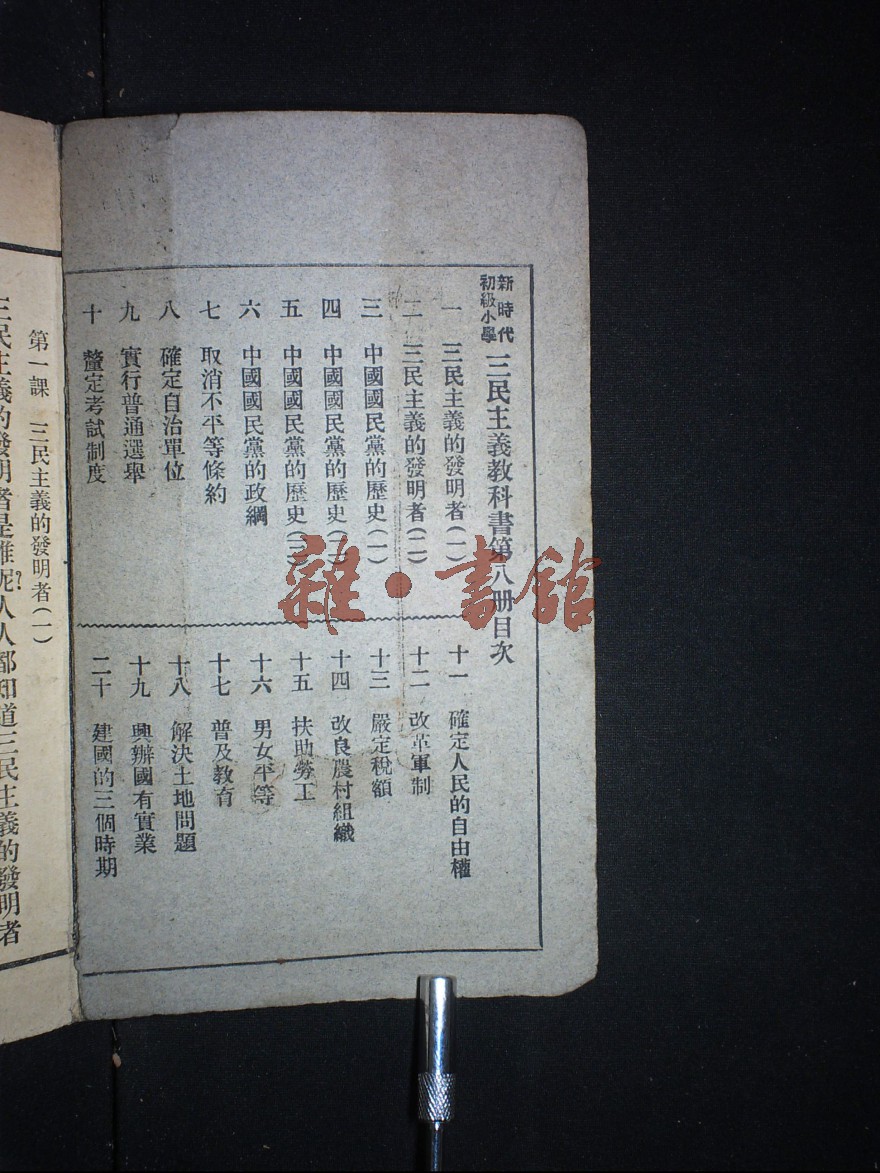 新時代
初級小學
三民主義教科書第八册目次
一 三民主義的發明者(一)
二 三民主義的發明者(二)
三 中國國民黨的歷史(一)
四 中國國民黨的歷史
五 中國國民黨的歷史
六 中國國民黨的政綱
七 取消不平等條約
八 確定自治單位
九 實行普通選舉
十 釐定考試制度
十一 確定人民的自由權
十二 改革軍制
十三 嚴定稅額
十四 改良農村組織
十五 扶助勞工
十六 男女平等
十七 普及教育
十八 解決土地問題
十九 興辦國有實業
二十 建國的三個時期
第一課 三民主義的發明者(一)
三民主義的發明者是誰呢?人人都知道三民主義的發明者
雜·書館